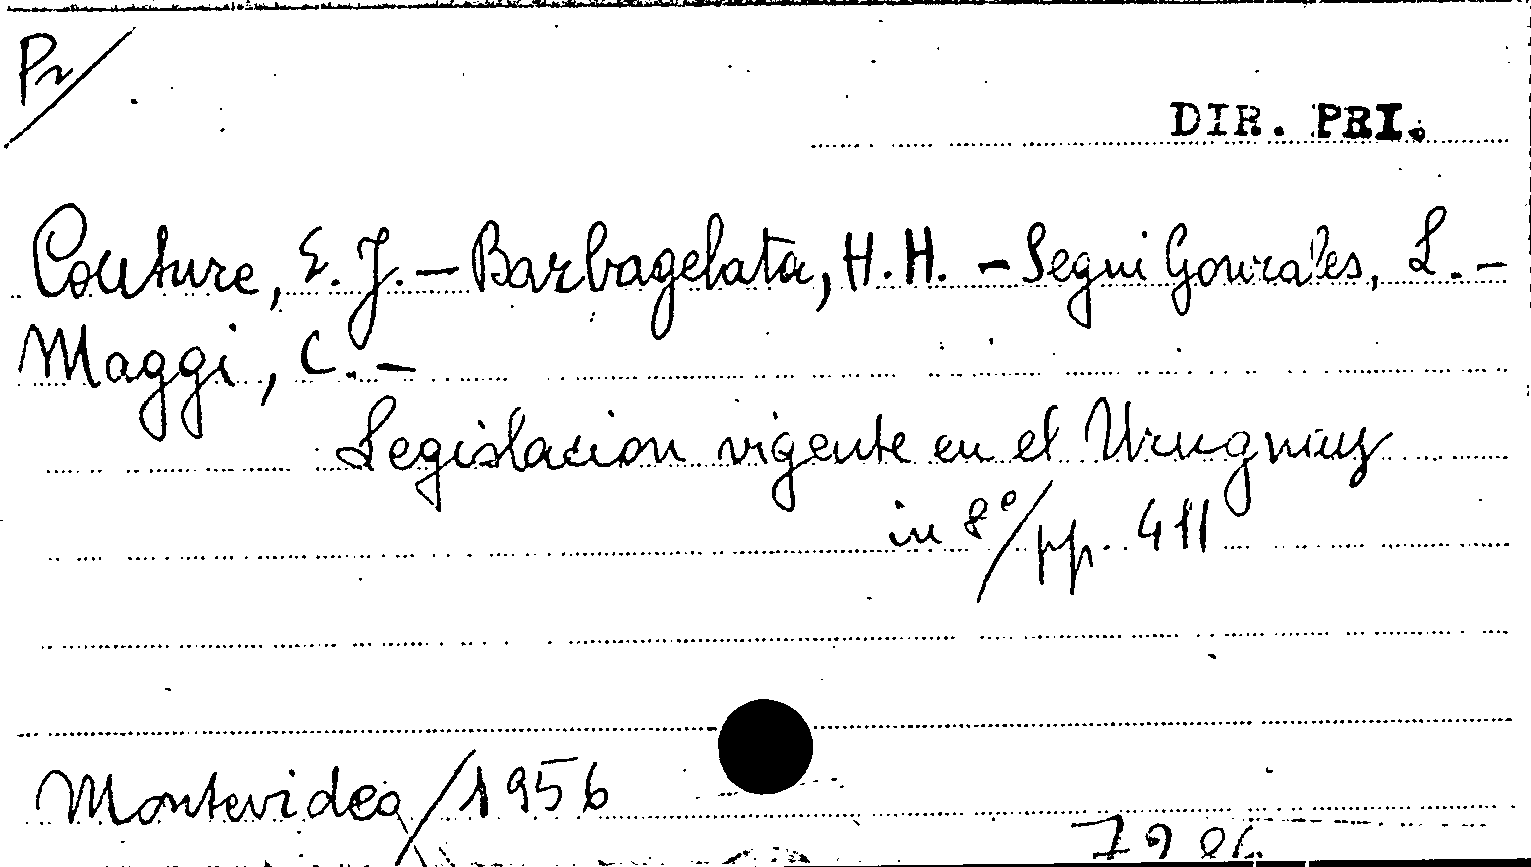 Pr/
DIR. PRI.
Couture, E. J. – Barbagelata, H. H. – Segui Gonzales, L. –
Maggi, C. –
Legislacion vigente en el Uruguay
in 8°/pp. 411
Montevideo/1956